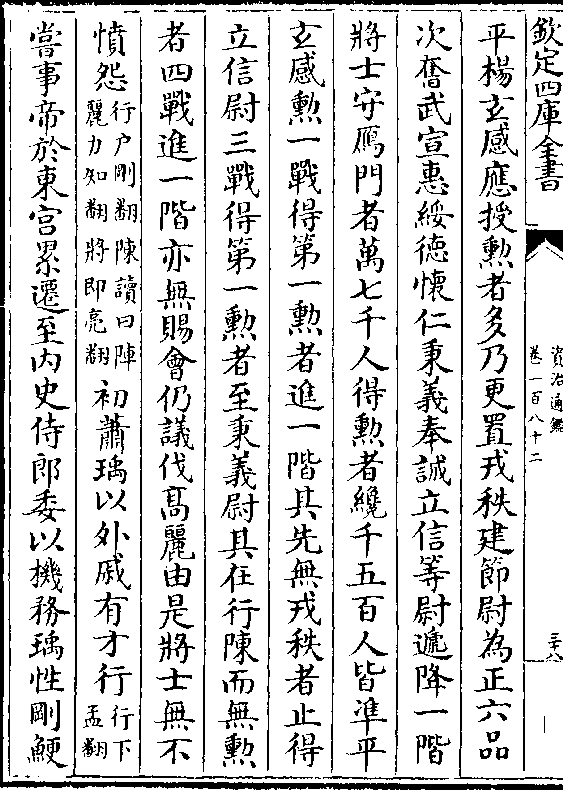 欽定四庫全書
資治通鑑
卷一百八十二
三十八
平楊玄感應授勲者多乃更置戎秩建節尉為正六品
次奮武宣惠綏德懷仁秉義奉誠立信等尉遞降一階
將士守鴈門者萬七千人得勲者纔千五百人皆準平
玄感勲一戰得第一勲者進一階其先無戎秩者止得
立信尉三戰得第一勲者至秉義尉其在行陳而無勲
者四戰進一階亦無賜會仍議伐高麗由是將士無不
憤怨行户剛翻陳讀曰陣麗力知翻將即亮翻初蕭瑀以外戚有才行行下孟翻
嘗事帝於東宫累遷至内史侍郎委以機務瑀性剛鯁